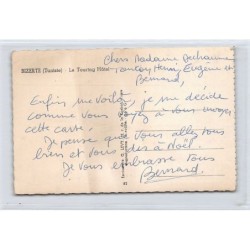 BIZERTE (Tunisie) - Le Touring Hôtel
Chers Madame Duchaume
Tonton Henri, Eugène et
Bernard,
Enfin me voilà, je me décide
comme vous à vous
cette carte.
Je pense que Vous allez tous
bien et vous dis à Noël.
Je vous embrasse tous
Bernard.